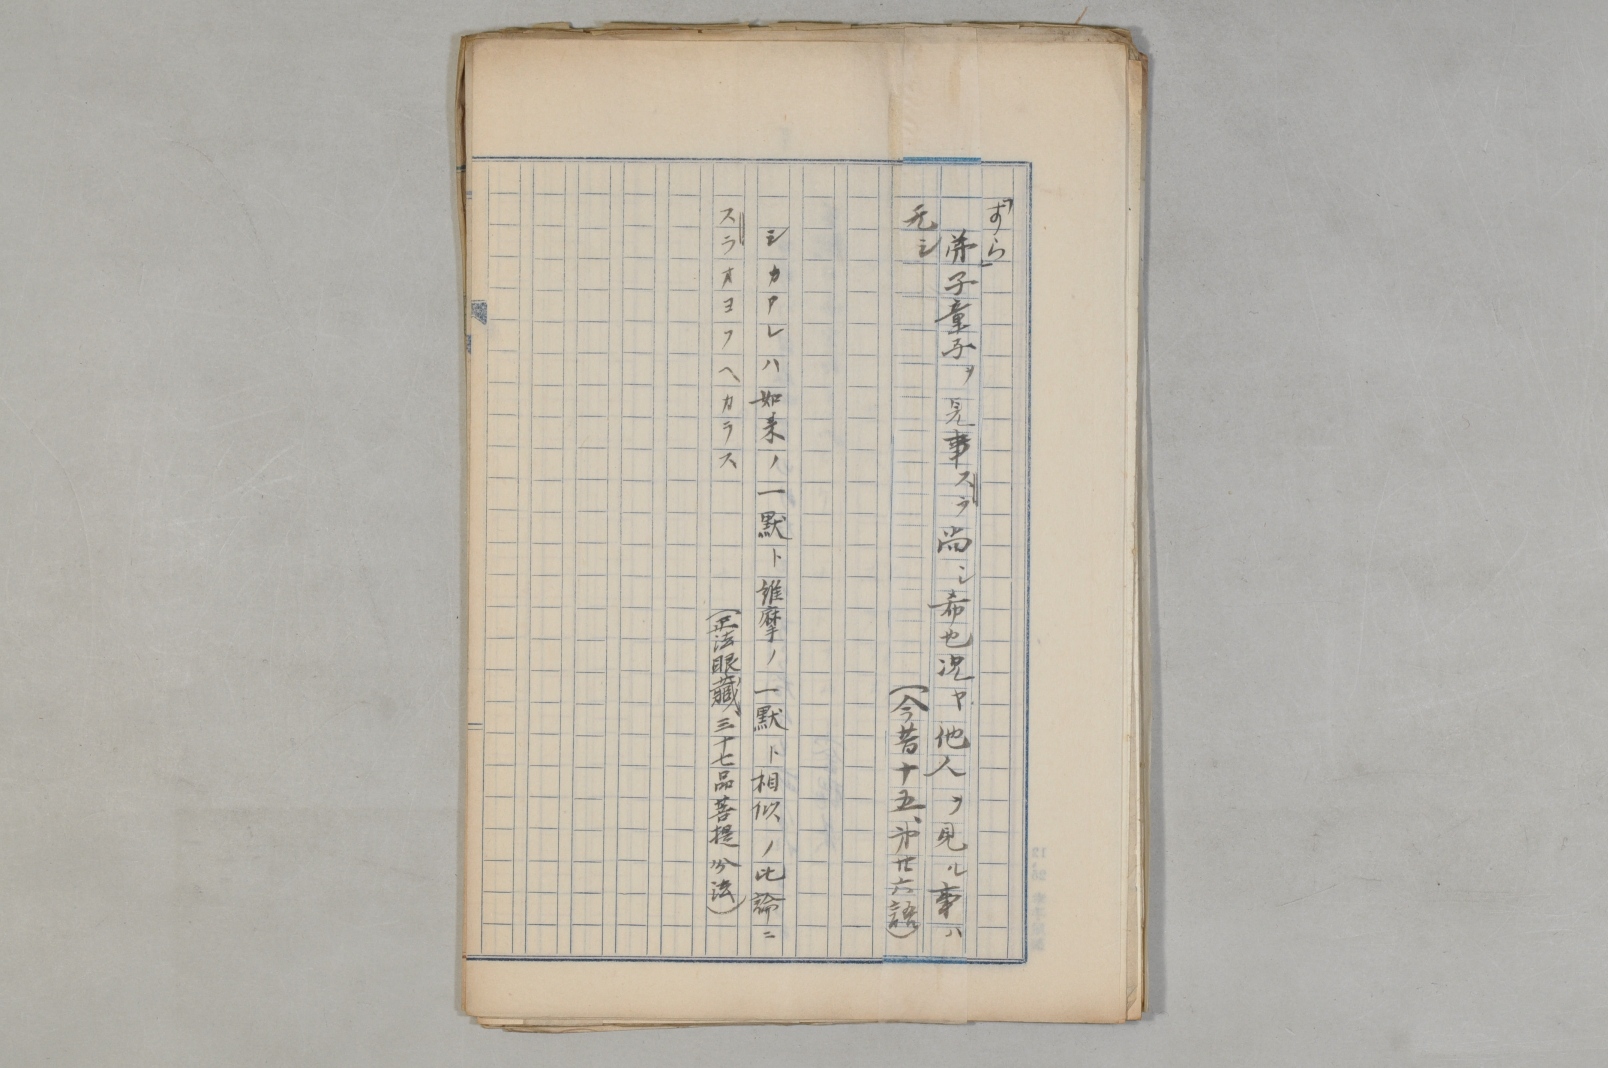 「すら」
弟子童子ヲ見事スラ尚シ希也況ヤ他人ヲ見ル事ハ
无シ
(今昔十五、第廿六語)
シカアレハ如来ノ一黙ト維摩ノ一黙ト相似ノ此論ニ
スラオヨフヘカラス
(正法眼蔵、三十七品菩提分法)